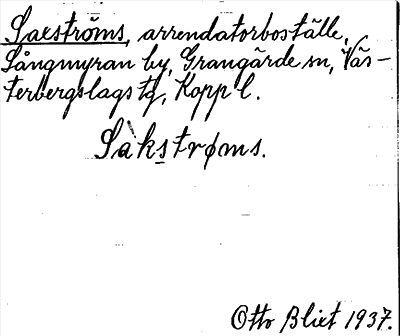 Saxströms, arrendatorboställe,
Långmyran by, Grangärde sn, Väs-
terbergslags tg, Kopp l.
Sàkstrøms.
Otto Blixt 1937.